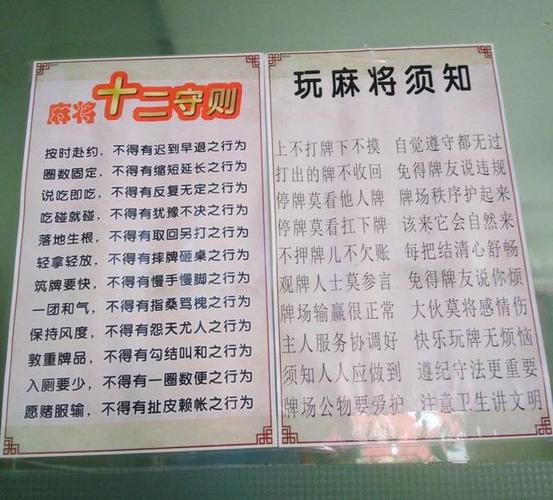 麻将十二守则
按时赴约，不得有迟到早退之行为
圈数固定，不得有缩短延长之行为
说吃即吃，不得有反复无定之行为
吃碰就碰，不得有犹豫不决之行为
落地生根，不得有取回另打之行为
轻拿轻放，不得有摔牌砸桌之行为
筑牌要快，不得有慢手慢脚之行为
一团和气，不得有指桑骂槐之行为
保持风度，不得有怨天尤人之行为
敦重牌品，不得有勾结叫和之行为
入厕要少，不得有一圈数便之行为
愿赌服输，不得有扯皮赖帐之行为
玩麻将须知
上不打牌下不摸 自觉遵守都无过
打出的牌不收回 免得牌友说违规
停牌莫看他人牌 牌场秩序护起来
停牌莫看扛下牌 该来它会自然来
不押牌儿不欠账 每把结清心舒畅
观牌人士莫参言 免得牌友说你烦
牌场输赢很正常 大伙莫将感情伤
主人服务协调好 快乐玩牌无烦恼
须知人人应做到 遵纪守法更重要
牌场公物要爱护 注意卫生讲文明